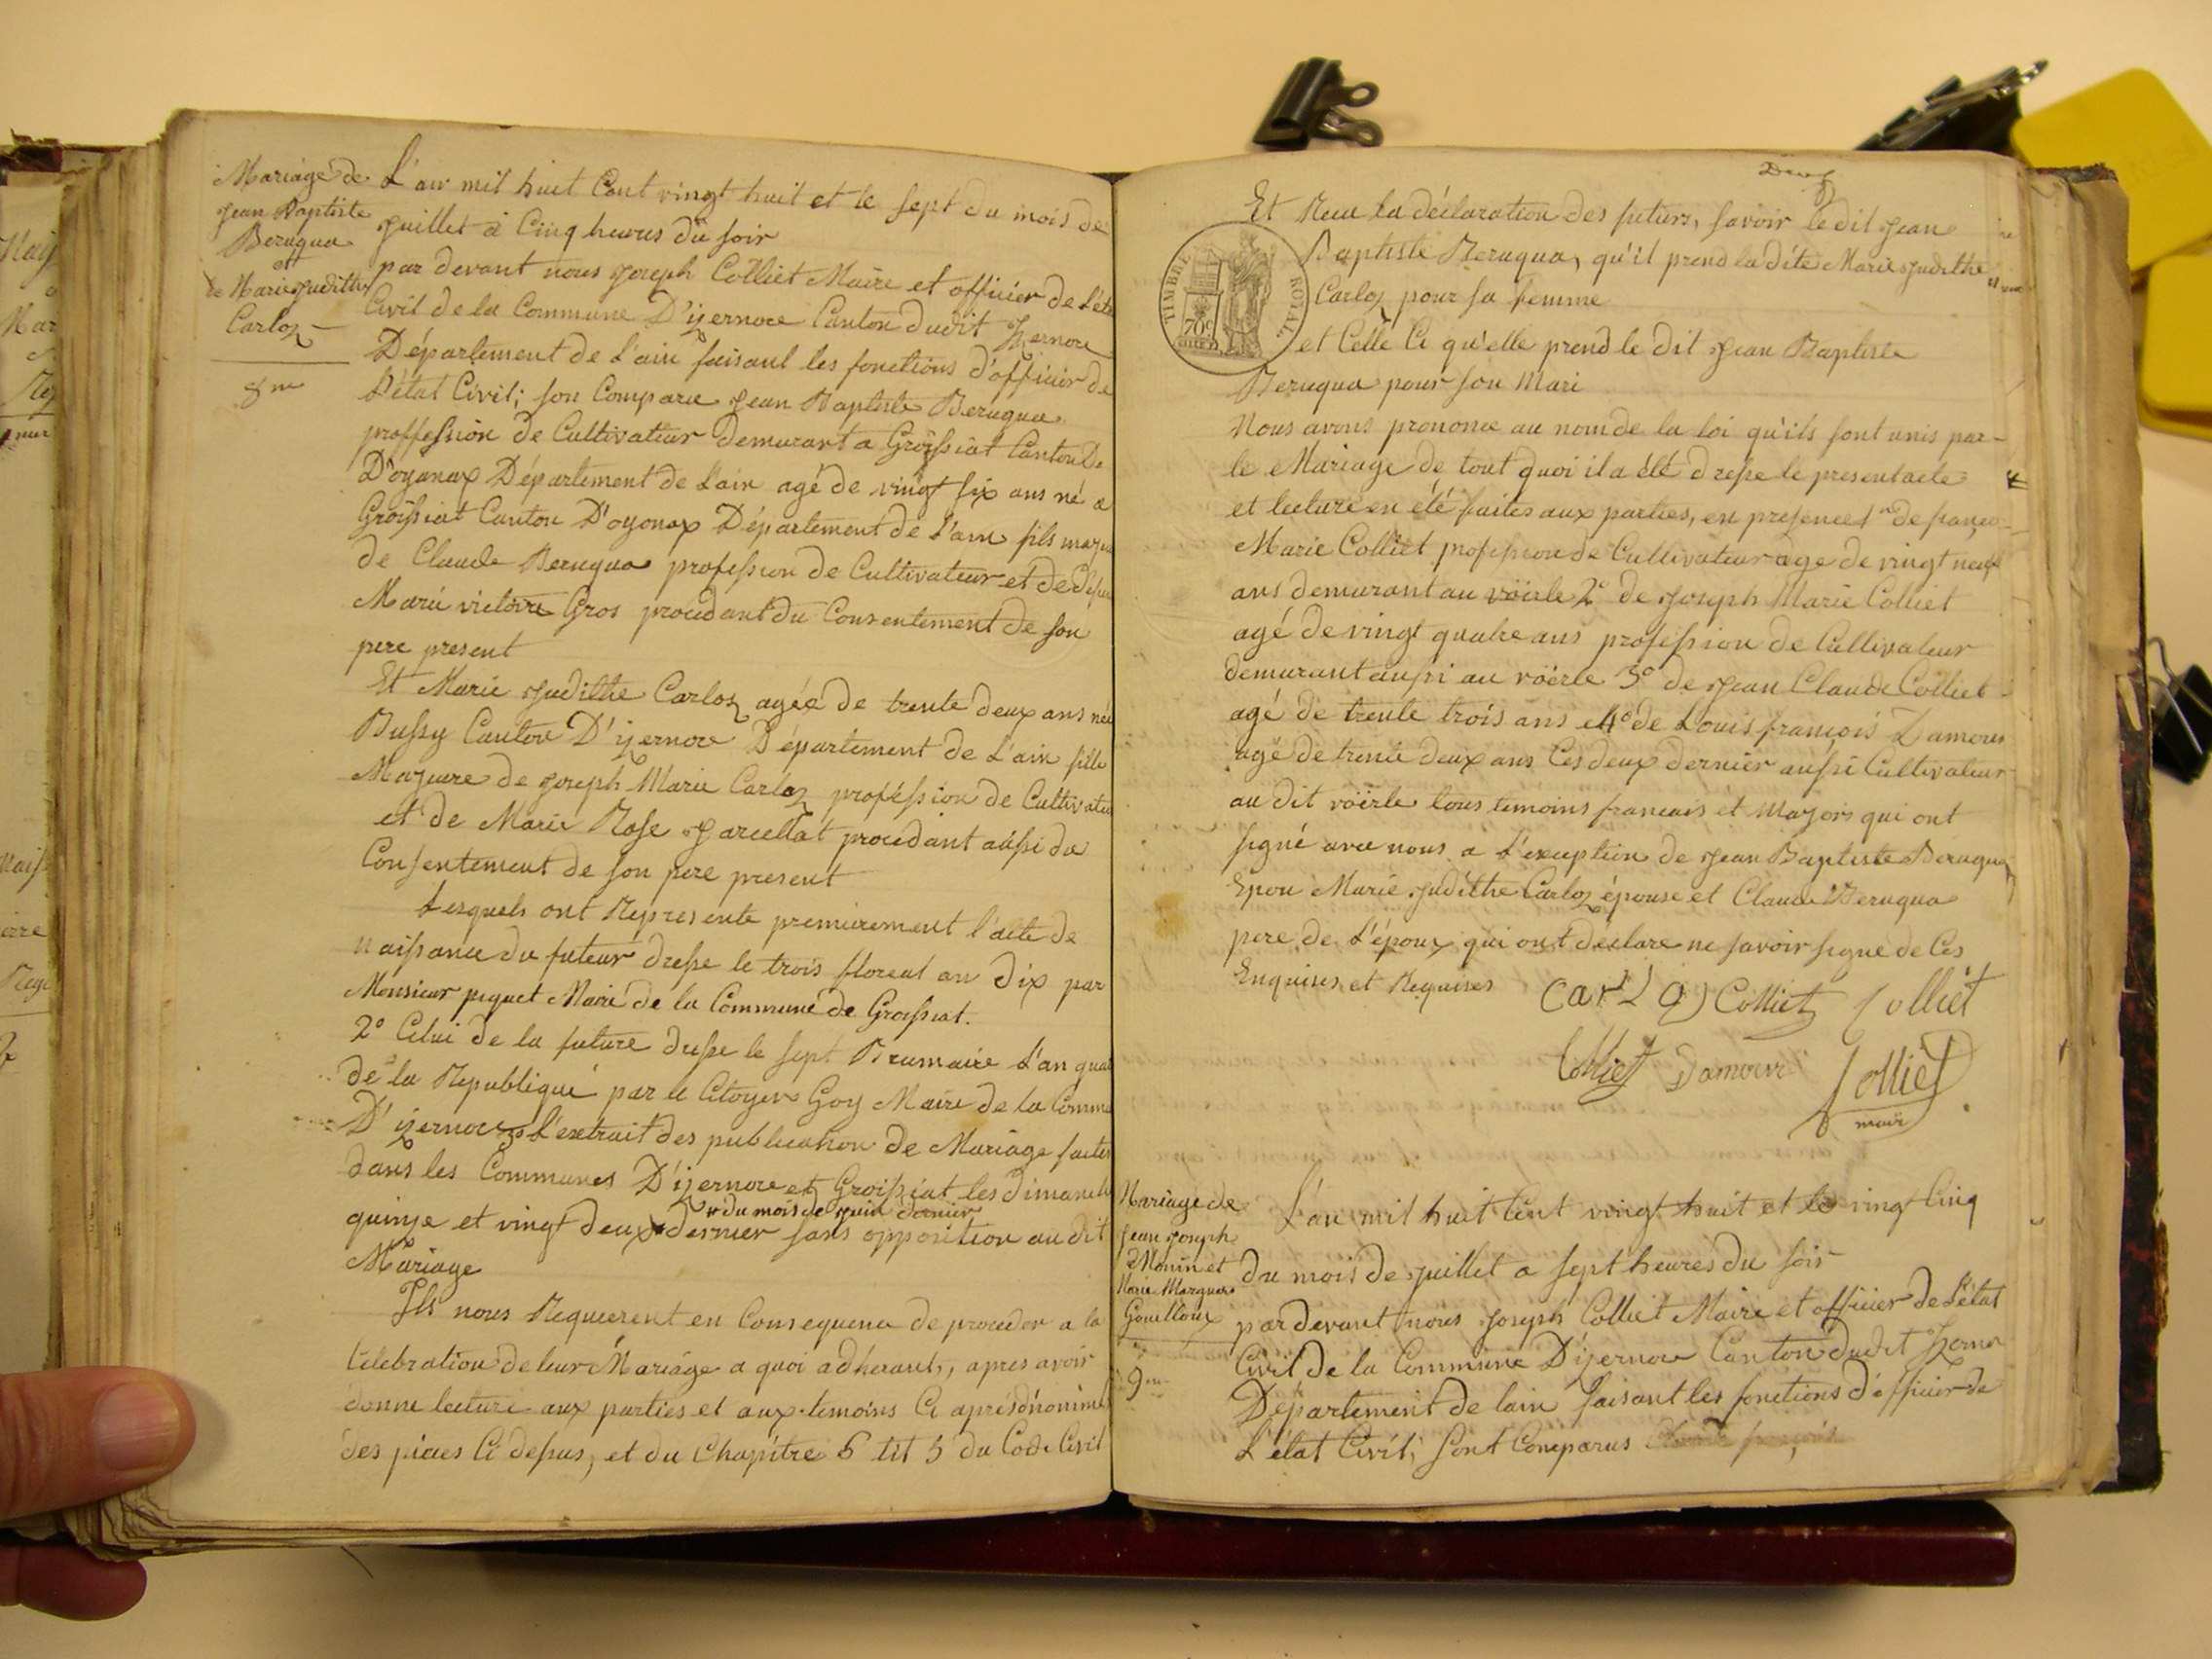 Mariage de
Jean Baptiste
Beruqua
et
de Marie Judithe
Carloz
8me
L'an mil huit Cent vingt huit et le sept du mois de
Juillet à Cinq heures du soir
par devant nous Joseph Colliet Maire et officier de L'état
Civil de la Commune D'yzernore Canton dudit Yzernore
Département de L'ain faisant les fonctions d'officier de
L'état Civil; son Comparu Jean Baptiste Beruqua
proffession de Cultivateur demurant a Groissiat Canton De
D'oyonax Département de L'ain agé de vingt six ans né a
Groissiat Canton D'oyonax Département de L'ain fils majeur
de Claude Beruqua profession de Cultivateur et de Défunte
Marie victoire Gros procedant du Consentement de son
pere present
Et Marie Judithe Carloz agée de trente deux ans née
Bussy Canton D'yzernore Département de L'ain fille
Majeure de Joseph Marie Carloz profession de Cultivateur
et de Marie Rose Jarcellat procedant aussi du
Consentement de son pere present
Lesquels ont Represente premierement l'acte de
naissance du futeur dresse le trois floreal an dix par
Monsieur piquet Maire de la Commune de Groissiat.
2° Celui de la future dresse le sept Brumaire L'an quatre
de la Republique par le Citoyen Goy Maire de la Commune
D'yzernore 3° L'extrait des publication de Mariage faites
dans les Communes D'yzernore et Groissiat les dimanche
* du mois de Juin dernier
quinze et vingt deux * dernier sans opposition au dit
Mariage
Ils nous Requierent en Consequence de proceder a la
Celebration de leur Mariage a quoi adherant, apres avoir
donne lecture aux parties et aux temoins Ci aprés dénonimés
des pieces Ci dessus, et du Chapitre 6 tit 5 du Code Civil
Deux
TIMBRE ROYAL
70c
Et Recu la déclaration des futurs, savoir le dit Jean
Baptiste Beruqua, qu'il prend la dite Marie Judithe
Carloz pour sa femme
et Celle Ci qu'elle prend le dit Jean Baptiste
Beruqua pour son Mari
Nous avons prononce au nom de la loi qu'ils sont unis par
le Mariage de tout quoi il a été dresse le present acte
et lecture en été faites aux parties, en presence 1° de françois
Marie Colliet profession de Cultivateur age de vingt neuf
ans demurant au voërle 2° de Joseph Marie Colliet
agé de vingt quatre ans profession de Cultivateur
demurant aussi au voërle 3° de Jean Claude Colliet
agé de trente trois ans et 4° de Louis françois Damours
agé de trente deux ans Ces deux dernier aussi Cultivateur
au dit voërle tous temoins francais et Majors qui ont
signé avec nous a L'exception de Jean Baptiste Beruqua
Epou Marie Judithe Carloz épouse et Claude Beruqua
pere de L'époux qui ont déclare ne savoir signe de Ces
Enquises et Requises
Carloz Colliet Colliet
Colliet Damour Colliet
mair
Mariage de
Jean Joseph
Monin et
Marie Marguerite
Gouilloux
9me
L'an mil huit Cent vingt huit et le vingt Cinq
du mois de Juillet a sept heures du soir
par devant nous Joseph Colliet Maire et officier de L'état
Civil de la Commune D'yzernore Canton dudit Yzernor
Département de lain faisant les fonctions d'officier de
L'état Civil; sont Comparus